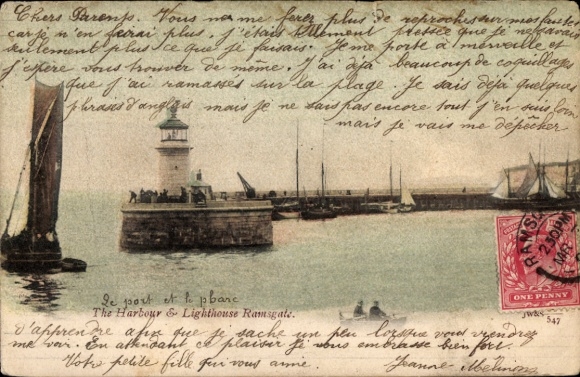 Chers Parents. Vous ne me ferez plus de reproches sur mes fautes
car je n'en ferai plus, j'étais tellement pressée que je ne savais
seulement plus ce que je faisais. Je me porte à merveille et
j'espère vous trouver de même. J'ai déjà beaucoup de coquillages
que j'ai ramassés sur la plage. Je sais déjà quelques
phrases d'anglais mais je ne sais pas encore tout j'en suis loin
mais je vais me dépêcher
RAMSG
2 30 PM
MR
ONE PENNY
Le port et le phare
The Harbour & Lighthouse Ramsgate.
547
d'apprendre afin que je sache un peu lorsque vous viendrez
me voir. En attendant ce plaisir je vous embrasse bien fort.
Votre petite fille qui vous aime. Jeanne